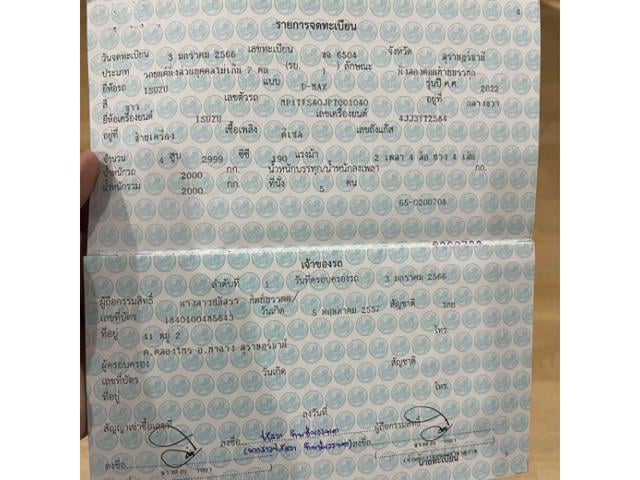 4
รายการจดทะเบียน
วันจดทะเบียน 3 มกราคม 2566 เลขทะเบียน ขฉ 6504 จังหวัด สุราษฎร์ธานี
ประเภท รถยนต์นั่งส่วนบุคคลไม่เกิน 7 คน (รย. 1) ลักษณะ
ยี่ห้อรถ ISUZU แบบ D-MAX รุ่นปี ค.ศ. 2022
สี ขาว เลขตัวรถ อยู่ที่ กลางขวา
ยี่ห้อเครื่องยนต์ ISUZU เลขเครื่องยนต์
อยู่ที่ ซ้ายเครื่อง เชื้อเพลิง ดีเซล เลขถังแก๊ส
จำนวน 4 สูบ 2999 ซีซี 190 แรงม้า 2 เพลา 4 ล้อ ยาง 4 เส้น
น้ำหนักรถ 2000 กก. น้ำหนักบรรทุก/น้ำหนักลงเพลา กก.
น้ำหนักรวม 2000 กก. ที่นั่ง 5 คน
65-0200708
เจ้าของรถ
ลำดับที่ 1 วันที่ครอบครองรถ 3 มกราคม 2566
ผู้ถือกรรมสิทธิ์
เลขที่บัตร 1840100485643 วันเกิด 5 พฤษภาคม 2537 สัญชาติ ไทย
ที่อยู่ 41 หมู่ 2 โทร.
ต.คลองไทร อ.ท่าฉาง สุราษฎร์ธานี
ผู้ครอบครอง
เลขที่บัตร วันเกิด สัญชาติ
ที่อยู่ โทร.
ลงวันที่
สัญญาเช่าซื้อเลขที่ ผู้ถือกรรมสิทธิ์
ลงชื่อ ลงชื่อ
ลงชื่อ นายทะเบียน
5